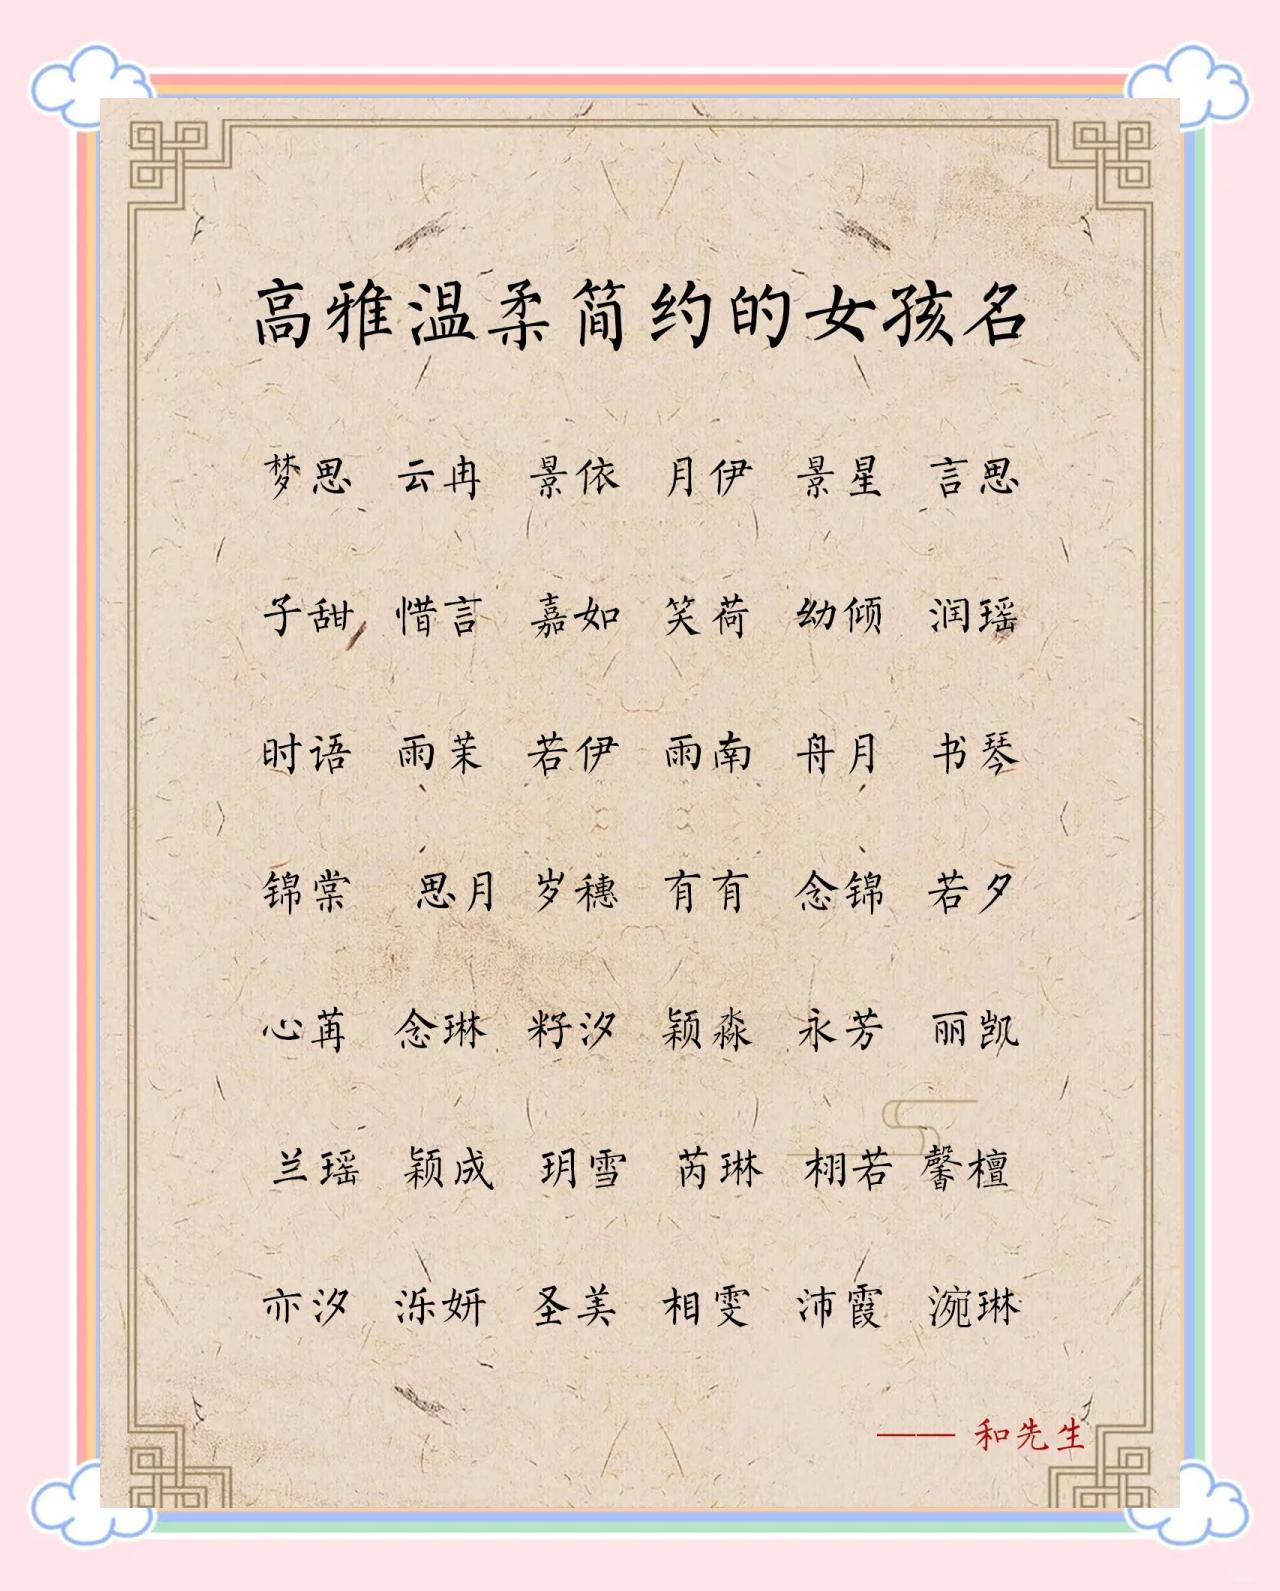 高雅温柔简约的女孩名
梦思 云冉 景依 月伊 景星 言思
子甜 惜言 嘉如 笑荷 幼倾 润瑶
时语 雨茉 若伊 雨南 舟月 书琴
锦棠 思月 岁穗 有有 念锦 若夕
心苒 念琳 籽汐 颖淼 永芳 丽凯
兰瑶 颖成 玥雪 芮琳 栩若 馨檀
亦汐 泺妍 圣美 相雯 沛霞 涴琳
—— 和先生